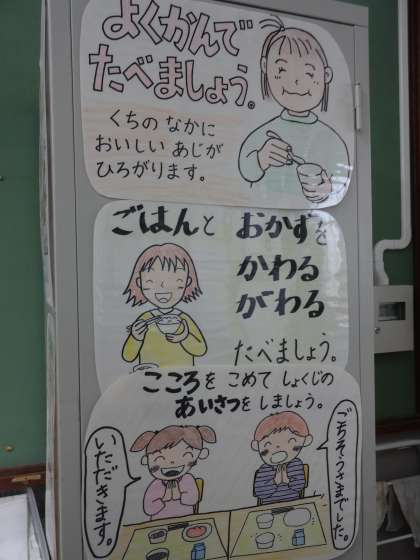 よくかんで
たべましょう。
くちの なかに
おいしい あじが
ひろがります。
ごはんと おかずを
かわる
がわる
たべましょう。
こころを こめて しょくじの
あいさつを しましょう。
いただきます。
ごちそうさまでした。